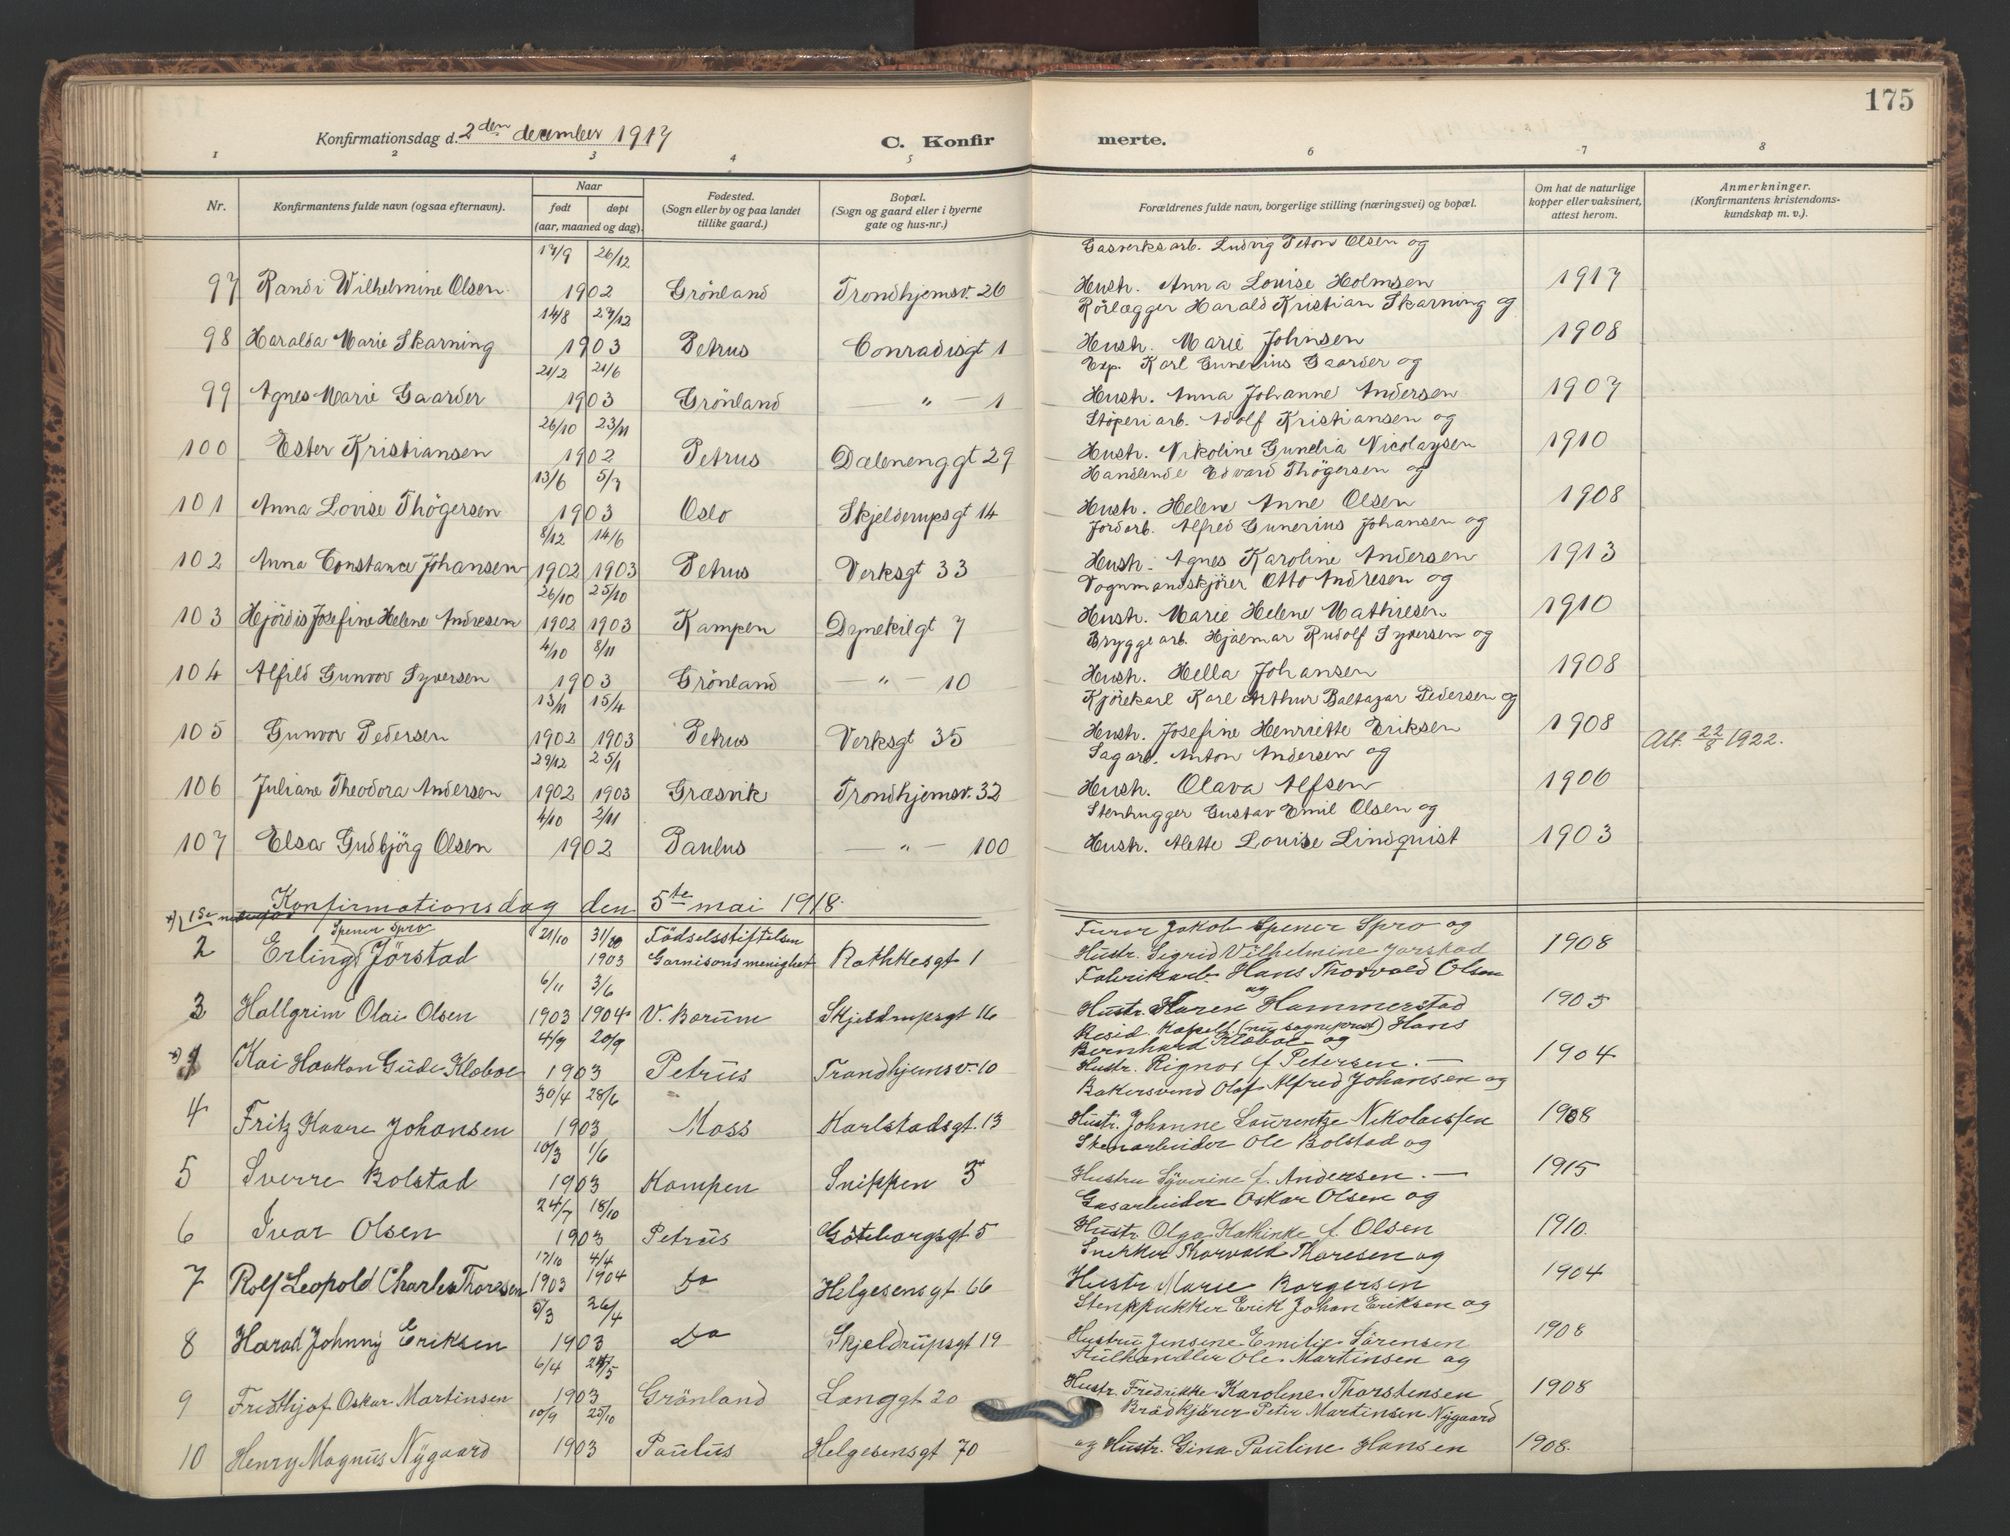 175
Konfirmationsdag d. 2den december 1917
C. Konfir
merte.
1 2 3 4 5 6 7 8
Nr.
Konfirmantens fulde navn (ogsaa efternavn).
Naar
født døpt
(aar, maaned og dag).
Fødested.
(Sogn eller by og paa landet
tillike gaard.)
Bopæl.
(Sogn og gaard eller i byerne
gate og hus-nr.)
Forældrenes fulde navn, borgerlige stilling (næringsvei) og bopæl.
Om hat de naturlige
kopper eller vaksinert,
attest herom.
Anmerkninger.
(Konfirmantens kristendoms-
kundskap m. v.).
17/9 26/12 Gasverksarb. Ludvig Peton Olsen og
97 Randi Wilhelmine Olsen 1902 Grönland Trondhjemsv. 26 Hustr. Anna Lovise Holmsen 1917
14/8 27/12 Rörlægger Harald Kristian Skarning og
98 Haralda Marie Skarning 1903 Petrus Conradisgt 1 Hustr. Marie Johnsen 1908
21/2 21/6 Exp. Karl Gunerius Gaarder og
99 Agnes Marie Gaarder 1903 Grönland " — 1 Hustr. Anna Johanne Andersen 1907
26/10 23/11 Støperiarb. Adolf Kristiansen og
100 Ester Kristiansen 1902 Petrus Dælenenggt 29 Hustr. Nikoline Gunelia Nicolaysen 1910
13/6 5/7 Handlende Edvard Thögersen og
101 Anna Lovise Thögersen 1903 Oslo Skjelderupsgt 14 Hustr. Helene Anne Olsen 1908
8/12 14/6 Jordarb. Alfred Gunerius Johansen og
102 Anna Constance Johansen 1902 1903 Petrus Verksgt 33 Hustr. Agnes Karoline Andersen 1913
26/10 25/10 Vognmandskjörer Otto Andresen og
103 Hjördis Josefine Helene Andresen 1902 1903 Kampen Dynekilgt 7 Hustr. Marie Helene Mathiesen 1910
4/10 8/11 Bryggearb. Hjalmar Rudolf Syversen og
104 Alfild Gunvor Syversen 1903 Grönland — " — 10 Hustr. Hella Johansen 1908
13/11 15/4 Kjörekarl Karl Arthur Baltazar Pedersen og
105 Gunvor Pedersen 1902 1903 Petrus Verksgt 35 Hustr. Josefine Henriette Eriksen 1908 Att. 22/8 1922.
29/12 25/1 Sagarb. Anton Andersen og
106 Juliane Theodora Andersen 1902 1903 Græsvik Trondhjemsv. 32 Hustr. Olava Alfsen 1906
4/10 2/11 Stenhugger Gustav Emil Olsen og
107 Elsa Gudbjörg Olsen 1902 Paulus — " — 100 Hustr. Alette Lovise Lindquist 1903
Konfirmationsdag den 5te mai 1918.
Spener Spro 21/10 31/80 Födselsstiftelsen Furer Jakob Spener Spro og
2 Erling Jörstad 1903 Garnisonsmenighet Rathkesgt 1 Hustr. Sigrid Vilhelmine Jorstad 1908
6/11 3/6 Fabrikarb. Hans Thorvald Olsen og
3 Hallgrim Olai Olsen 1903 1904 V. Barum Skjeldrupsgt 16 Hustr. Karen Hammerstad 1905
4/9 20/9 Resid. Kapell. (nu sogneprest) Hans
Bernhard Klæboe og
1 Kai Haakon Gude Klæboe 1903 Petrus Trondhjemsv. 10 Hustr. Rignor f. Petersen. — 1904
30/4 28/6 Bakersvend Olaf Alfred Johansen og
4 Fritz Kaare Johansen 1903 Moss Karlstadsgt. 13 Hustr. Johanne Laurentze Nikolaissen 1908
10/3 1/6 Skoarbeider Ole Bolstad og
5 Sverre Bolstad 1903 Kampen Snippen 3 Hustru Syverine f. Andersen. — 1915
24/7 18/10 Gasarbeider Oskar Olsen og
6 Ivar Olsen 1903 Petrus Göteborgsgt 5 Hustr. Olga Kathinke f. Olsen 1910.
17/10 4/4 Snekker Thorvald Thoresen og
7 Rolf Leopold Charles Thoresen 1903 1904 Do Helgesensgt 66 Hustr. Marie Borgersen 1904
5/3 26/4 Stenpukker Erik Johan Eriksen og
8 Harad Johnny Eriksen 1903 Do Skjeldrupsgt 19 Hustru Jensine Emilie Sörensen 1908
6/4 Kulhandler Ole Martinsen og
9 Fridthjof Oskar Martinsen 1903 Grönland Langgt 20 Hustr. Fredrikke Karoline Thorstensen 1908
10/9 25/10 Brödkjörer Peter Martinsen Nygaard
10 Henry Magnus Nygaard 1903 Paulus Helgesensgt 70 og Hustr. Gina Pauline Hansen 1908.